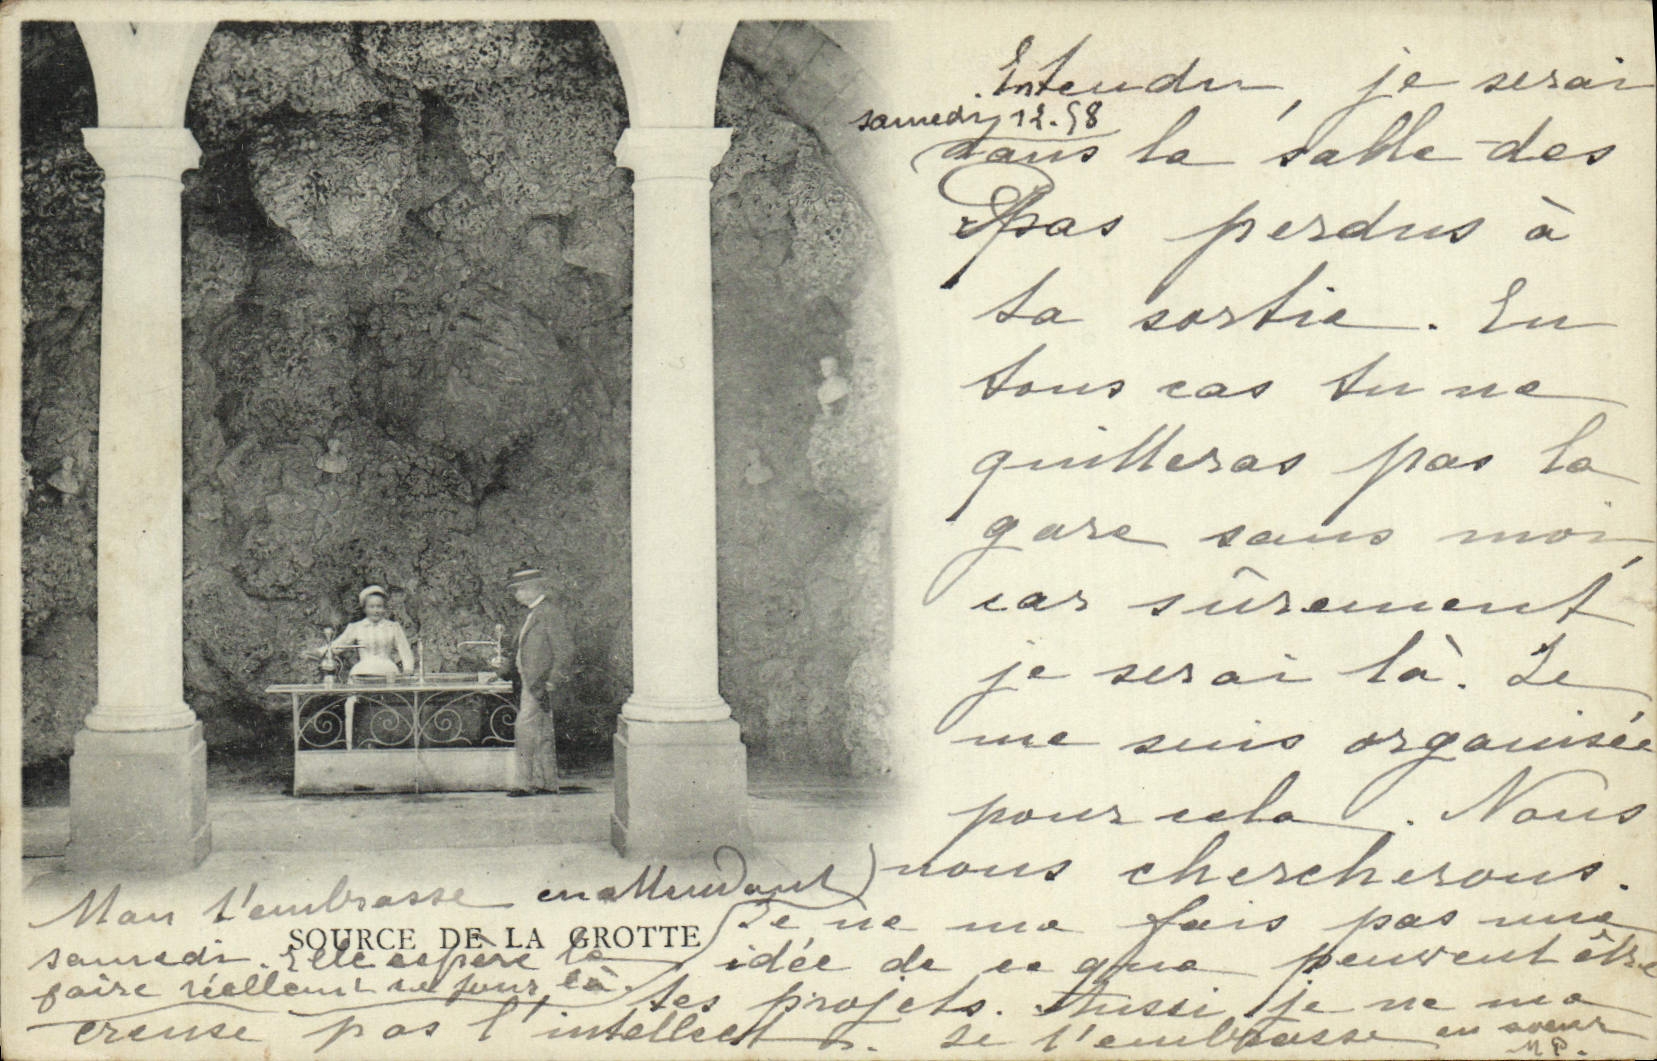 Entendu, je serai
samedi 12.58
dans la salle des
Pas perdus à
ta sortie. En
tous cas tu ne
quitteras pas la
gare sans moi,
car sûrement
je serai là. Je
me suis organisée
pour cela. Nous
nous chercherons.
Je ne me fais pas une
idée de ce que peuvent être
tes projets. Aussi je ne me
creuse pas l'intellect. Je t'embrasse en soeur
M P.
Man t'embrasse en attendant
samedi. Elle espère le
faire réellement ce jour là.
SOURCE DE LA GROTTE